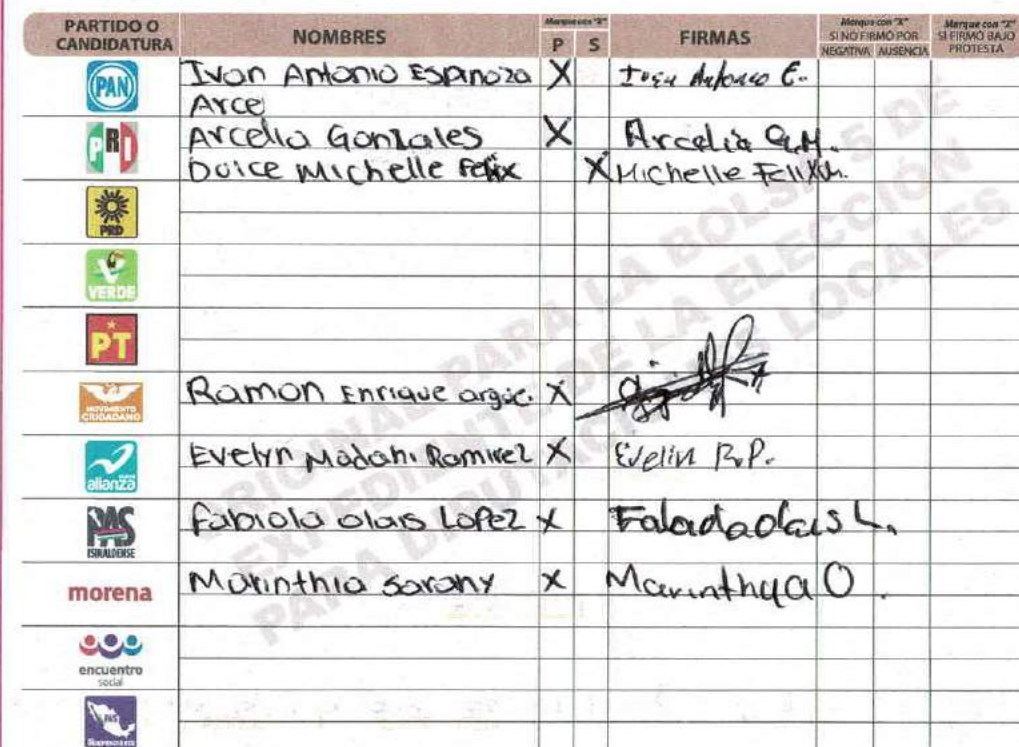 PARTIDO O CANDIDATURA NOMBRES Marque con "X" P S FIRMAS Marque con "X" SI NO FIRMÓ POR NEGATIVA AUSENCIA Marque con "X" SI FIRMÓ BAJO PROTESTA
PAN Ivan Antonio Espinoza X Ivan Antonio E.
Arce
PRI Arcelia Gonzales X Arcelia G.M.
Dulce Michelle Felix X Michelle Felix
PRD
VERDE
PT
MOVIMIENTO CIUDADANO Ramon Enrique X
nueva alianza Evelyn Madahi Ramirez X Evelin R.P.
PAS SINALOENSE Fabiola olais Lopez X
morena Marinthia Sarany X Marinthya O.
encuentro social
PAIS INDEPENDIENTE
ORIGINAL PARA LA BOLSA 5 DE
EXPEDIENTE DE LA ELECCIÓN
PARA DIPUTACIONES LOCALES